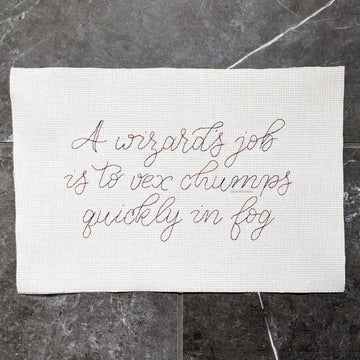 A wizard's job
is to vex chumps
quickly in fog